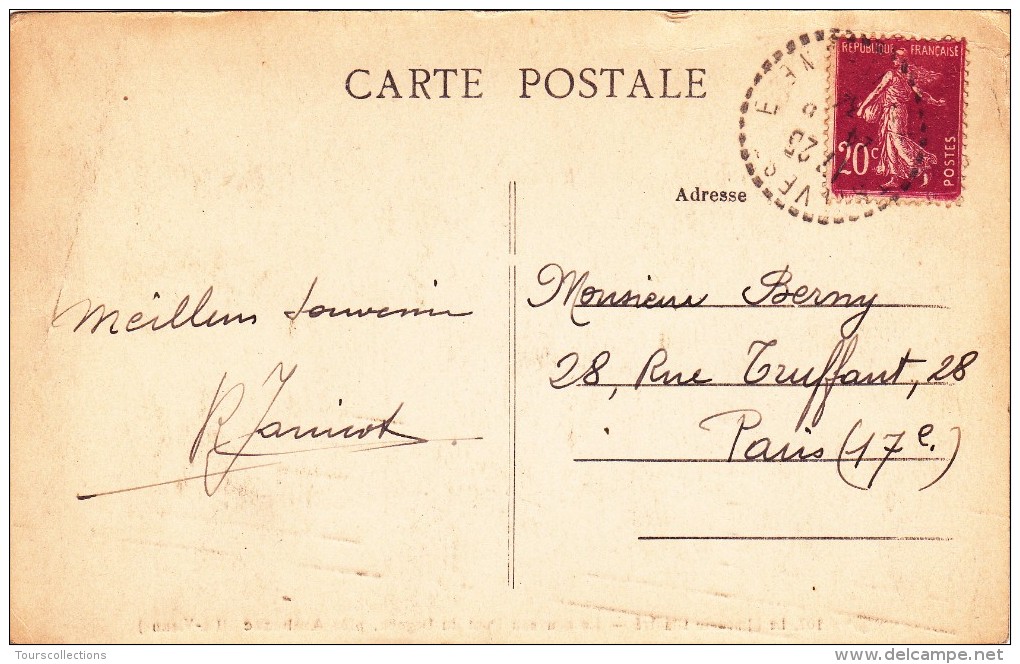 CARTE POSTALE
REPUBLIQUE FRANÇAISE
20c
POSTES
Adresse
Meilleurs souvenirs
R Janicot
Monsieur Berny
28, Rue Truffaut, 28
Paris (17e.)
Tourscollections
www.delcampe.net